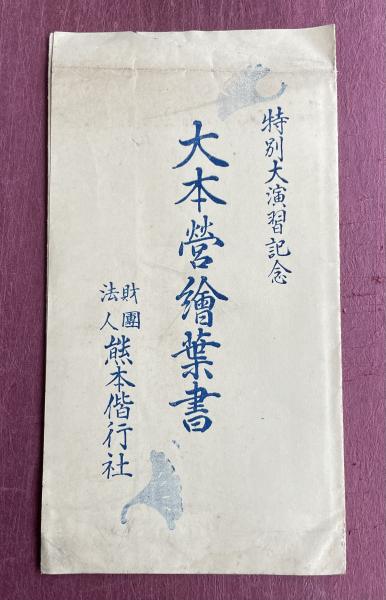 特別大演習記念
大本營繪葉書
財團
法人
熊本偕行社